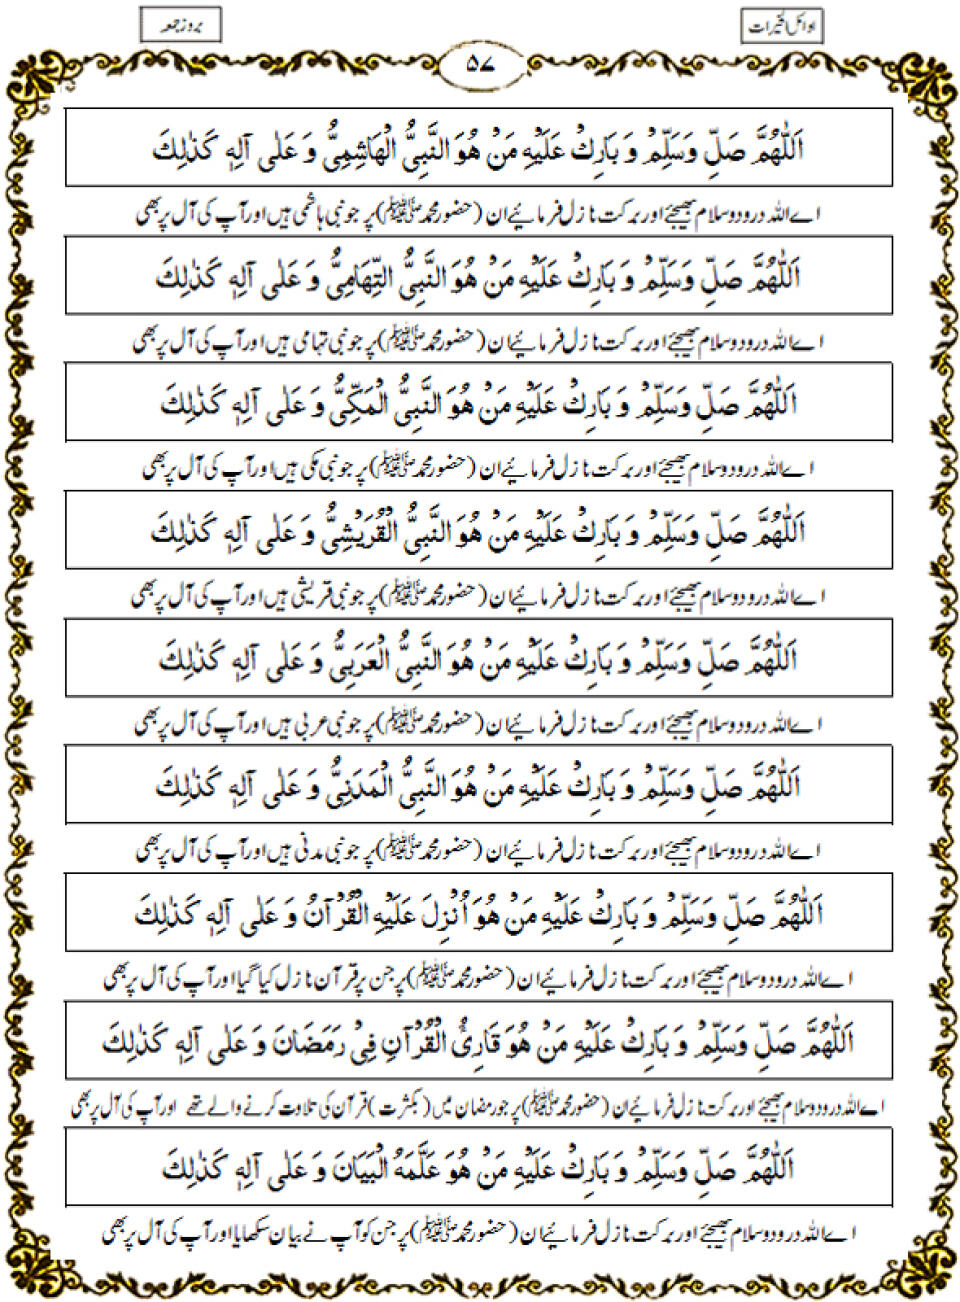 اوائل الخیرات
بروز جمعہ
۵۷
اَللّٰهُمَّ صَلِّ وَسَلِّمْ وَ بَارِكْ عَلَيْهِ مَنْ هُوَ النَّبِيُّ الْهَاشِمِيُّ وَ عَلٰى آلِهٖ كَذٰلِكَ
اے اللہ درود و سلام بھیجئے اور برکت نازل فرمائیے ان (حضور محمد ﷺ) پر جو نبی ہاشمی ہیں اور آپ کی آل پر بھی
اَللّٰهُمَّ صَلِّ وَسَلِّمْ وَ بَارِكْ عَلَيْهِ مَنْ هُوَ النَّبِيُّ التِّهَامِيُّ وَ عَلٰى آلِهٖ كَذٰلِكَ
اے اللہ درود و سلام بھیجئے اور برکت نازل فرمائیے ان (حضور محمد ﷺ) پر جو نبی تہامی ہیں اور آپ کی آل پر بھی
اَللّٰهُمَّ صَلِّ وَسَلِّمْ وَ بَارِكْ عَلَيْهِ مَنْ هُوَ النَّبِيُّ الْمَكِّيُّ وَ عَلٰى آلِهٖ كَذٰلِكَ
اے اللہ درود و سلام بھیجئے اور برکت نازل فرمائیے ان (حضور محمد ﷺ) پر جو نبی مکی ہیں اور آپ کی آل پر بھی
اَللّٰهُمَّ صَلِّ وَسَلِّمْ وَ بَارِكْ عَلَيْهِ مَنْ هُوَ النَّبِيُّ الْقُرَيْشِيُّ وَ عَلٰى آلِهٖ كَذٰلِكَ
اے اللہ درود و سلام بھیجئے اور برکت نازل فرمائیے ان (حضور محمد ﷺ) پر جو نبی قریشی ہیں اور آپ کی آل پر بھی
اَللّٰهُمَّ صَلِّ وَسَلِّمْ وَ بَارِكْ عَلَيْهِ مَنْ هُوَ النَّبِيُّ الْعَرَبِيُّ وَ عَلٰى آلِهٖ كَذٰلِكَ
اے اللہ درود و سلام بھیجئے اور برکت نازل فرمائیے ان (حضور محمد ﷺ) پر جو نبی عربی ہیں اور آپ کی آل پر بھی
اَللّٰهُمَّ صَلِّ وَسَلِّمْ وَ بَارِكْ عَلَيْهِ مَنْ هُوَ النَّبِيُّ الْمَدَنِيُّ وَ عَلٰى آلِهٖ كَذٰلِكَ
اے اللہ درود و سلام بھیجئے اور برکت نازل فرمائیے ان (حضور محمد ﷺ) پر جو نبی مدنی ہیں اور آپ کی آل پر بھی
اَللّٰهُمَّ صَلِّ وَسَلِّمْ وَ بَارِكْ عَلَيْهِ مَنْ هُوَ اُنْزِلَ عَلَيْهِ الْقُرْآنُ وَ عَلٰى آلِهٖ كَذٰلِكَ
اے اللہ درود و سلام بھیجئے اور برکت نازل فرمائیے ان (حضور محمد ﷺ) پر جن پر قرآن نازل کیا گیا اور آپ کی آل پر بھی
اَللّٰهُمَّ صَلِّ وَسَلِّمْ وَ بَارِكْ عَلَيْهِ مَنْ هُوَ قَارِئُ الْقُرْآنِ فِيْ رَمَضَانَ وَ عَلٰى آلِهٖ كَذٰلِكَ
اے اللہ درود و سلام بھیجئے اور برکت نازل فرمائیے ان (حضور محمد ﷺ) پر جو رمضان میں (بکثرت) قرآن کی تلاوت کرنے والے تھے اور آپ کی آل پر بھی
اَللّٰهُمَّ صَلِّ وَسَلِّمْ وَ بَارِكْ عَلَيْهِ مَنْ هُوَ عَلَّمَهُ الْبَيَانَ وَ عَلٰى آلِهٖ كَذٰلِكَ
اے اللہ درود و سلام بھیجئے اور برکت نازل فرمائیے ان (حضور محمد ﷺ) پر جن کو آپ نے بیان سکھایا اور آپ کی آل پر بھی